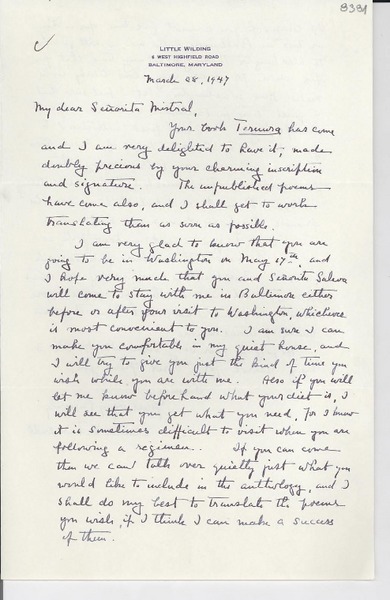 8381
LITTLE WILDING
4 WEST HIGHFIELD ROAD
BALTIMORE, MARYLAND
March 28, 1947
My dear Señorita Mistral,
Your book Ternura has come
and I am very delighted to have it, made
doubly precious by your charming inscription
and signature. The unpublished poems
have come also, and I shall get to work
translating them as soon as possible.
I am very glad to know that you are
going to be in Washington on May 17th and
I hope very much that you and Señorita
will come to stay with me in Baltimore either
before or after your visit to Washington, whichever
is most convenient to you. I am sure I can
make you comfortable in my quiet house, and
I will try to give you just the kind of time you
wish while you are with me. Also if you will
let me know beforehand what your diet is, I
will see that you get what you need, for I know
it is sometimes difficult to visit when you are
following a regimen. If you can come
then we can talk over quietly just what you
would like to include in the anthology, and I
shall do my best to translate the poems
you wish, if I think I can make a success
of them.